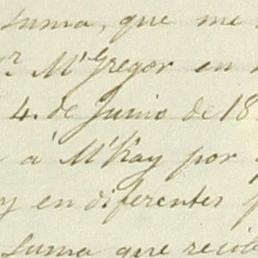 suma, que me
Sr. Mc Gregor en
4. de Junio de 18
á McKay por
y en diferentes
suma que recib